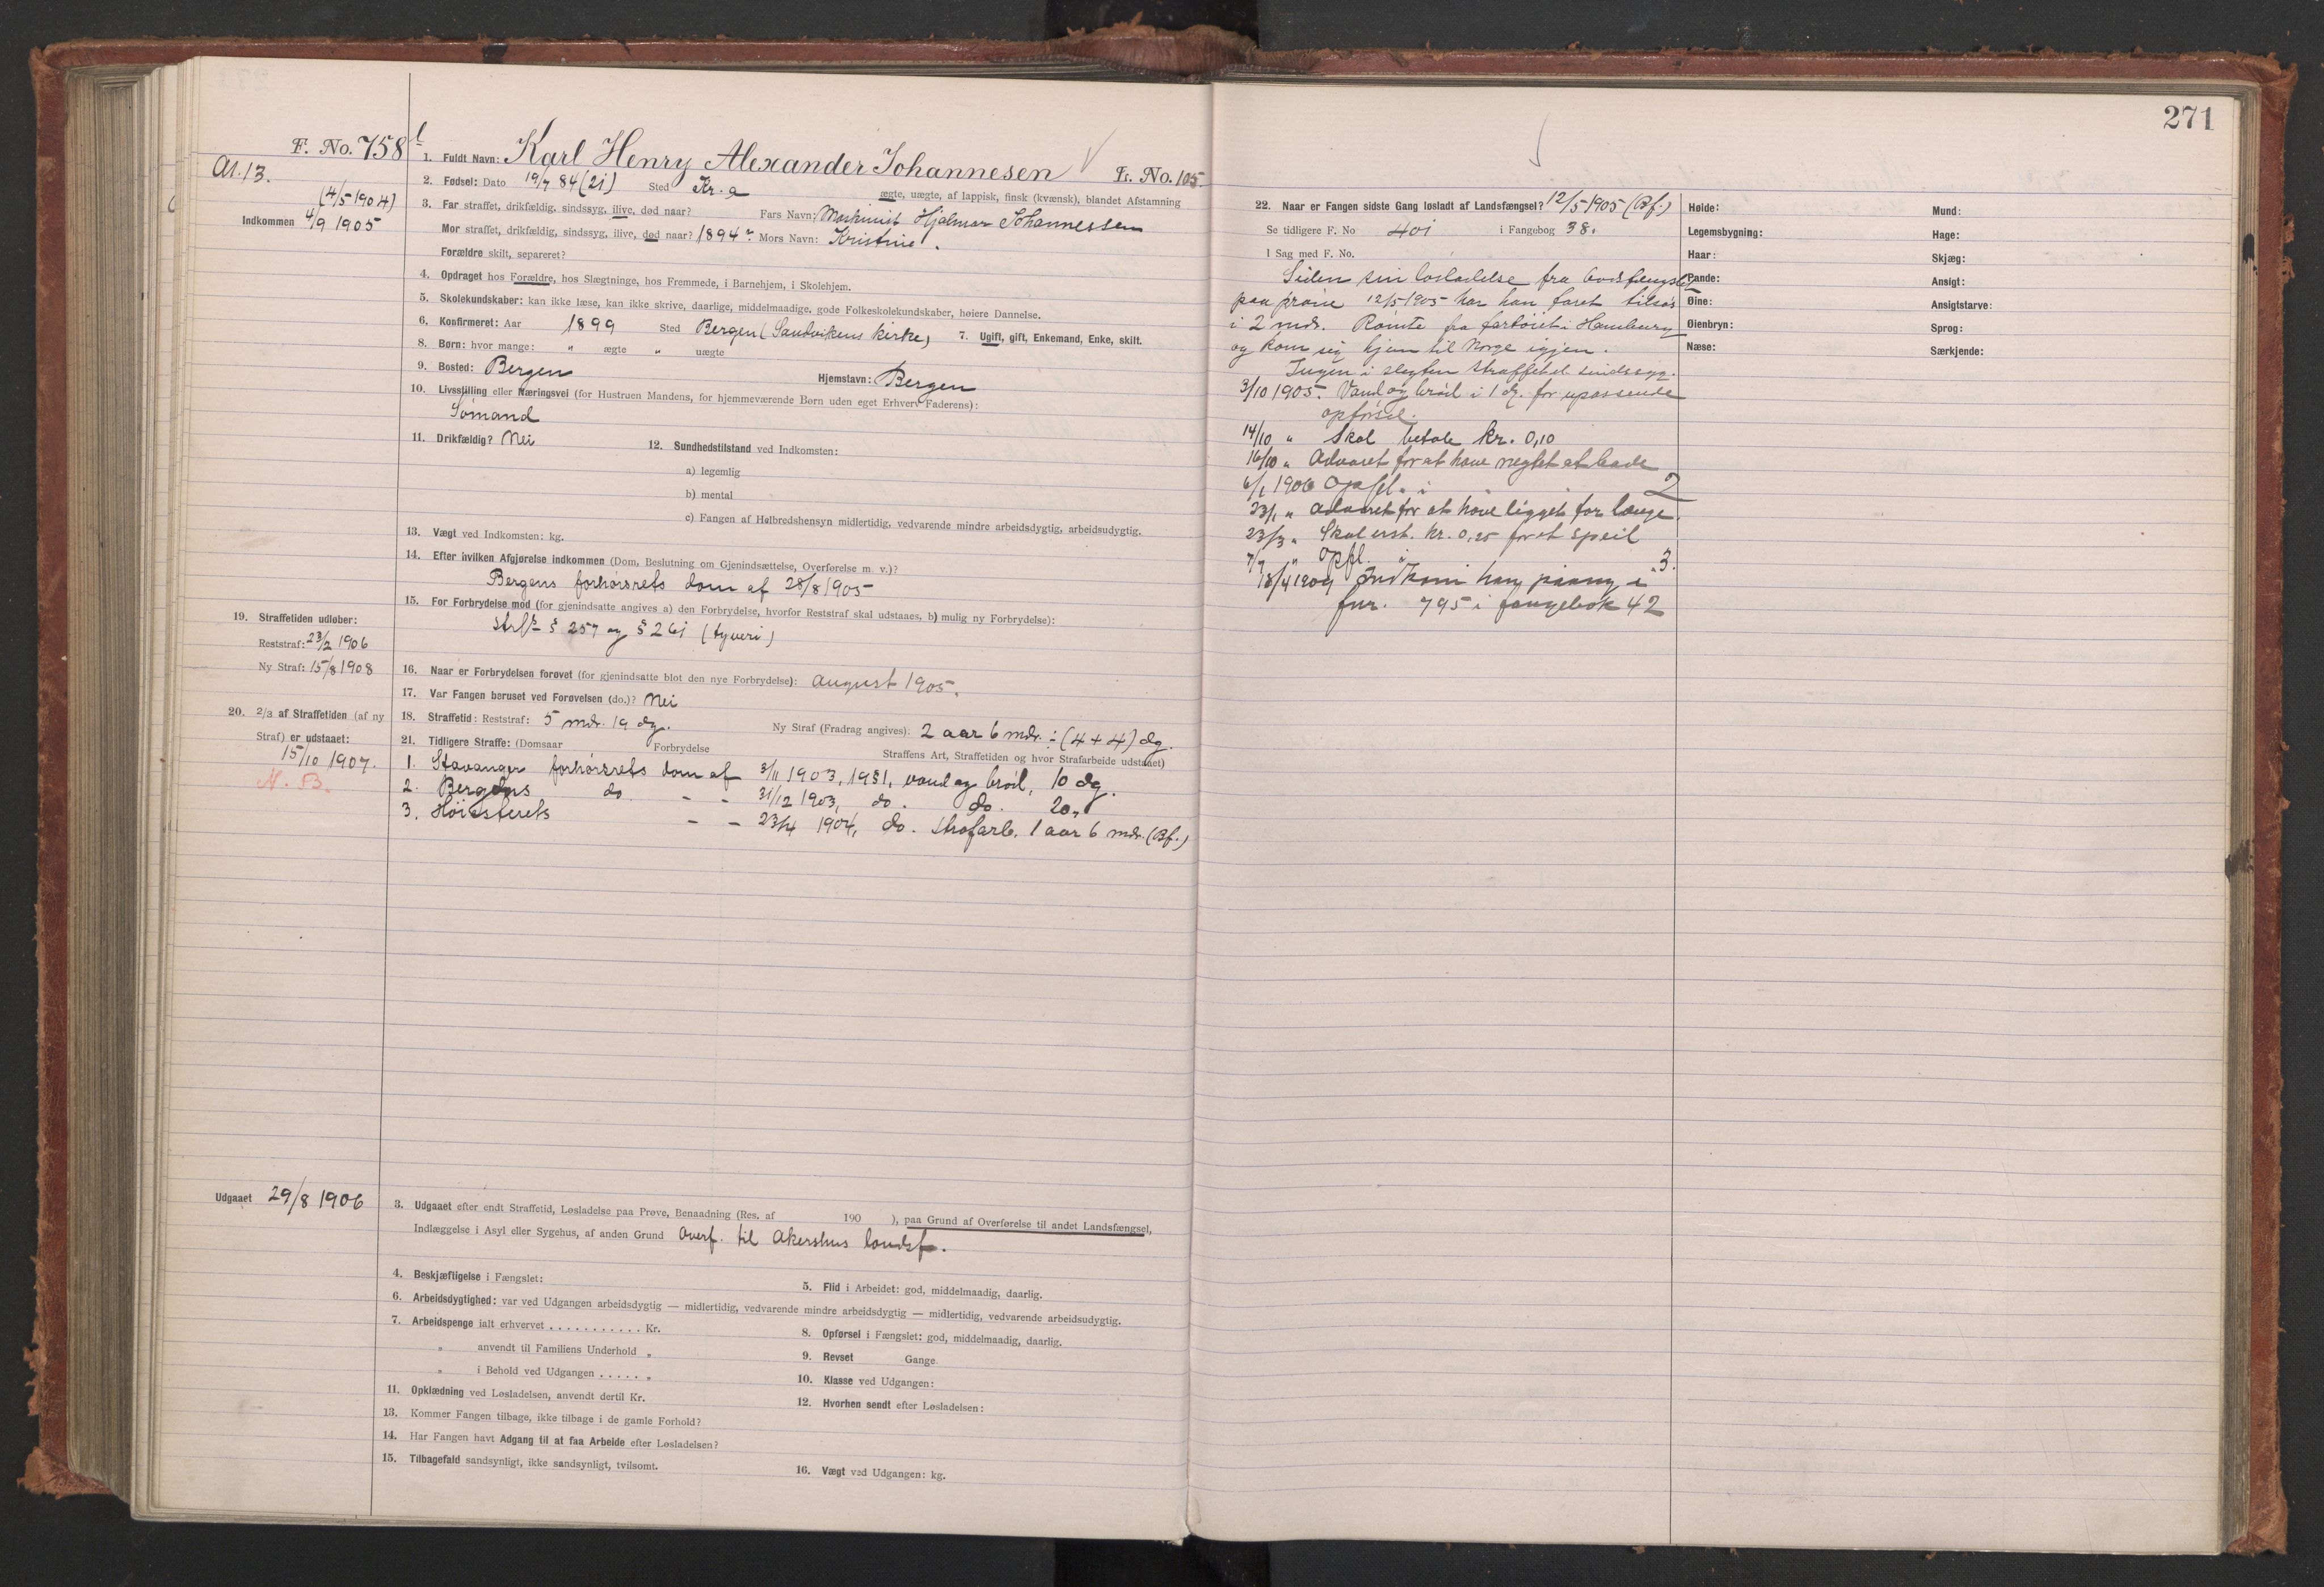 271
F. No. 758
Al. 13.
(4/5 1904)
Indkommen 4/9 1905
1. Fuldt Navn: Karl Henry Alexander Johannesen Fr. No. 105.
2. Fødsel: Dato 19/7 84 (21) Sted Kr.a ægte, uægte, af lappisk, finsk (kvænsk), blandet Afstamning
3. Far straffet, drikfældig, sindssyg, ilive, død naar? Fars Navn: Maskinist Hjalmar Johannessen
Mor straffet, drikfældig, sindssyg, ilive, død naar? 1894. Mors Navn: Kristine.
Forældre skilt, separeret?
4. Opdraget hos Forældre, hos Slægtninge, hos Fremmede, i Barnehjem, i Skolehjem.
5. Skolekundskaber: kan ikke læse, kan ikke skrive, daarlige, middelmaadige, gode Folkeskolekundskaber, høiere Dannelse.
6. Konfirmeret: Aar 1899 Sted Bergen (Sandvikens kirke) 7. Ugift, gift, Enkemand, Enke, skilt.
8. Børn: hvor mange: " ægte " uægte
9. Bosted: Bergen Hjemstavn: Bergen
10. Livsstilling eller Næringsvei (for Hustruen Mandens, for hjemmeværende Børn uden eget Erhverv Faderens):
Sømand
11. Drikfældig? Nei 12. Sundhedstilstand ved Indkomsten:
a) legemlig
b) mental
c) Fangen af Helbredshensyn midlertidig, vedvarende mindre arbeidsdygtig, arbeidsudygtig.
13. Vægt ved Indkomsten: kg.
14. Efter hvilken Afgjørelse indkommen (Dom, Beslutning om Gjenindsættelse, Overførelse m. v.)?
Bergens forhørsrets dom af 28/8 1905
15. For Forbrydelse mod (for gjenindsatte angives a) den Forbrydelse, hvorfor Reststraf skal udstaaes, b) mulig ny Forbrydelse):
Strfl. § 257 og § 261 (tyveri)
19. Straffetiden udløber:
Reststraf: 23/2 1906
Ny Straf: 15/8 1908
16. Naar er Forbrydelsen forøvet (for gjenindsatte blot den nye Forbrydelse): August 1905.
17. Var Fangen beruset ved Forøvelsen (do.)? Nei
18. Straffetid: Reststraf: 5 mdr. 19 dg. Ny Straf (Fradrag angives): 2 aar 6 mdr. ÷ (4 + 4) dg.
20. 2/3 af Straffetiden (af ny
Straf) er udstaaet:
15/10 1907.
N. B.
21. Tidligere Straffe: (Domsaar Forbrydelse Straffens Art, Straffetiden og hvor Strafarbeide udstaaet)
1. Stavanger forhørsrets dom af 3/11 1903, vand og brød, 10 dg.
2. Bergens do - - 31/12 1903, do. do. 20 "
3. Høiesterets - - 23/4 1904, do. strafarb. 1 aar 6 mdr. (Bf.)
Udgaaet 29/8 1906
3. Udgaaet efter endt Straffetid, Løsladelse paa Prøve, Benaadning (Res. af 190 ), paa Grund af Overførelse til andet Landsfængsel,
Indlæggelse i Asyl eller Sygehus, af anden Grund Overf. til Akershus landsf.
4. Beskjæftigelse i Fængslet: 5. Flid i Arbeidet: god, middelmaadig, daarlig.
6. Arbeidsdygtighed: var ved Udgangen arbeidsdygtig — midlertidig, vedvarende mindre arbeidsdygtig — midlertidig, vedvarende arbeidsudygtig.
7. Arbeidspenge ialt erhvervet . . . . . . . . . . . Kr. 8. Opførsel i Fængslet: god, middelmaadig, daarlig.
" anvendt til Familiens Underhold " 9. Revset Gange
" i Behold ved Udgangen . . . . . " 10. Klasse ved Udgangen:
11. Opklædning ved Løsladelsen, anvendt dertil Kr. 12. Hvorhen sendt efter Løsladelsen:
13. Kommer Fangen tilbage, ikke tilbage i de gamle Forhold?
14. Har Fangen havt Adgang til at faa Arbeide efter Løsladelsen?
15. Tilbagefald sandsynligt, ikke sandsynligt, tvilsomt. 16. Vægt ved Udgangen: kg.
22. Naar er Fangen sidste Gang løsladt af Landsfængsel? 12/5 1905 (Bf.)
Se tidligere F. No 401 i Fangebog 38.
I Sag med F. No.
Siden sin løsladelse fra bodsfængslet
paa prøve 12/5 1905 har han faret tilsøs
i 2 mdr. Rømte fra fartøiet i Hamburg
og kom sig hjem til Norge igjen.
Ingen i slegten straffet el. sindssyg.
3/10 1905. Vand og brød i 1 dg. for upassende
opførsel.
14/10 " Skal betale kr. 0,10
16/10 " Advaret for at have negtet at bade
6/1 1906 Opfl. i 2
23/1 " Advaret for at have ligget for længe.
23/3 " Skal erst. kr. 0,25 for et speil
7/7 " Opfl. i " 3.
18/4 1909 Indkom han paany i
fnr. 795 i fangebok 42
Høide: Mund:
Legemsbygning: Hage:
Haar: Skjæg:
Pande: Ansigt:
Øine: Ansigtstarve:
Øienbryn: Sprog:
Næse: Særkjende: